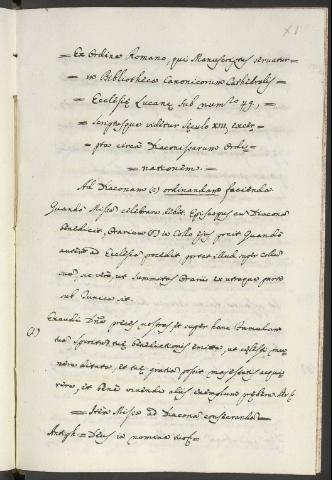 XI
= Ex Ordine Romano, qui Manuscriptus servatur =
= in Bibliotheca Canonicorum Cathedralis =
= Ecclesię Lucanę sub num.to 
= Scriptusque videtur Sęculo XIII, excer =
= pta circa Diaconissarum Ordi =
= nationem. =
Ad Diaconam (1) ordinandam facienda
Quando Missa celebrari debet, Episcopus cum Diacona
benedicit, Orarium in Collo ejus ponit. Quando
autem ad Ecclesia procedit, portat illud super Collum
suum, sic vero, ut summitas Orarii ex utraque parte
sub Tunica sit.
Exaudi Dne preces nostras, et super hanc Famulam
(1) tuam Spiritum tuę benedictionis emitte, ut cęlesti mu
nere ditata, et tuę gratiam possit majestatis acqui
rere, et bene vivendi aliis exemplum prębere. Per
= Item Missa ad Diaconam consecrandam =
Antiph. = Deus in nomine tuo =